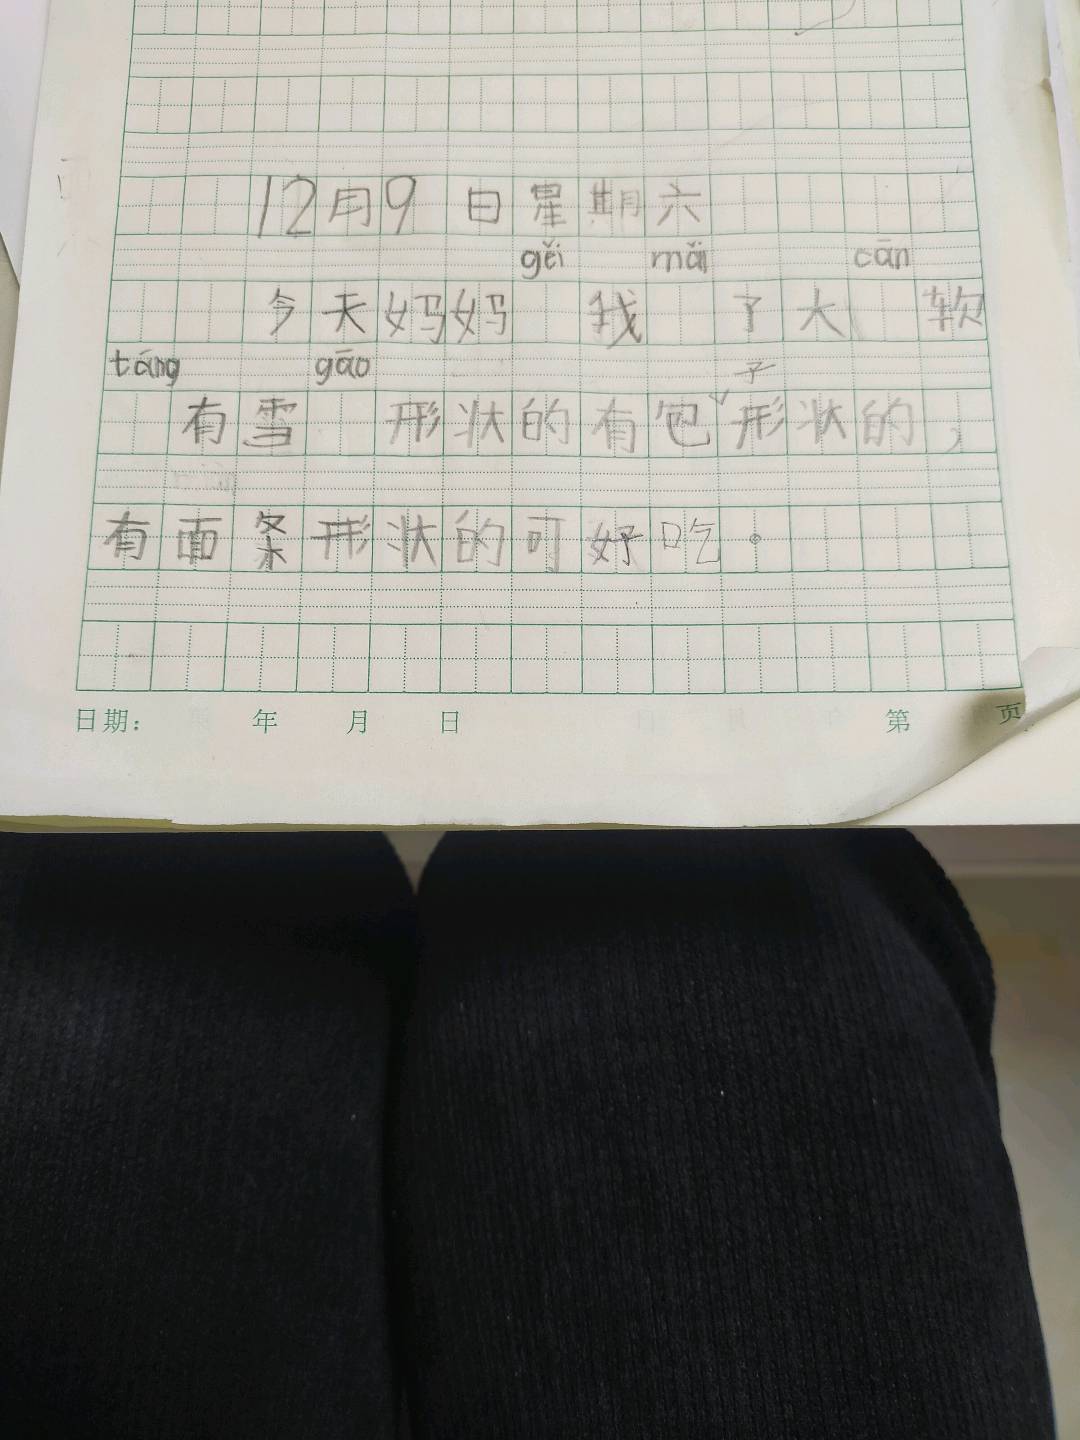 12月9日星期六
gěi mǎi cān
今天妈妈 我 了大 软
táng gāo 子
有雪 形状的有包形状的,
有面条形状的可好吃。
日期: 年 月 日 第 页